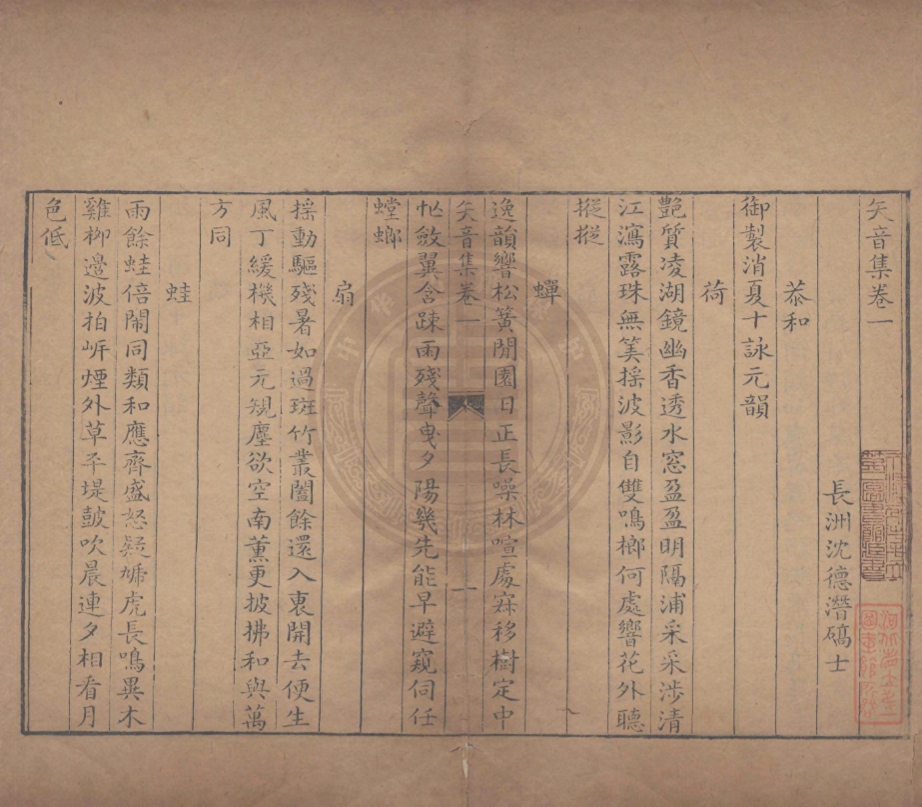 矢音集卷一
長洲沈德潛碻士
恭和
御製消夏十詠元韻
荷
艷質凌湖鏡幽香透水窓盈盈明隔浦采采涉清
江瀉露珠無筭揺波影自雙鳴榔何處響花外聽
摐摐
蟬
逸韻響松簧閒園日正長噪林喧處寂移樹定中
矢音集卷一
一
忙斂翼含踈雨殘聲曳夕陽幾先能早避窺伺任
螳螂
扇
揺動驅殘暑如過班竹叢闔餘還入裏開去便生
風丁緩機相亞元規塵欲空南薰更披拂和與萬
方同
蛙
雨餘蛙倍閙同類和應齊盛怒疑虓虎長鳴異木
雞柳邊波拍岍煙外草平堤皷吹晨連夕相看月
色低